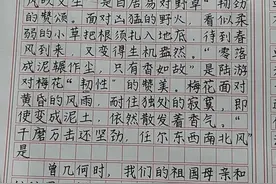 风吹又生"是白居易对野草"韧劲
的赞颂。面对凶猛的野火，看似柔
弱的小草把根须扎入地底，待到春
风到来，又变得生机盎然。"零落
成泥辗作尘，只有香如故"是陆游
对梅花"韧性"的赞美。梅花面对
黄昏的风雨，耐住独处的寂寞，即
使变成泥土，依然散发着香气。"
千磨万击还坚劲，任尔东西南北风"
是
曾几何时，我们的祖国母亲和